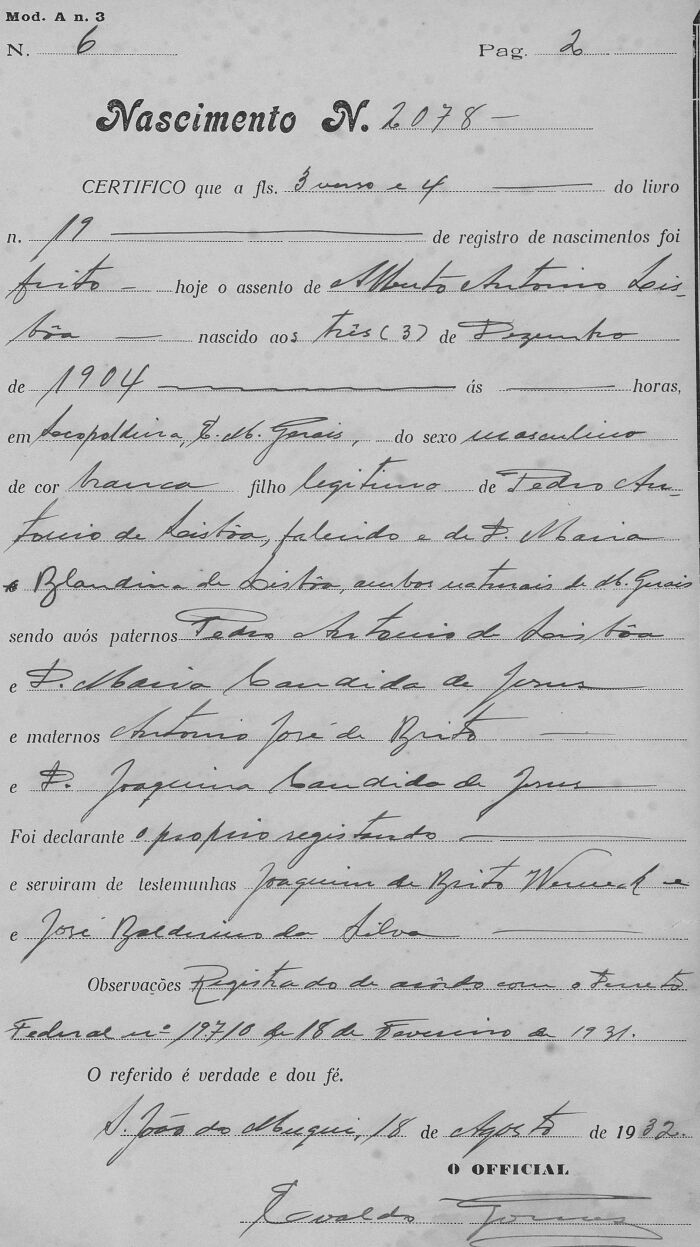 Mod. A n. 3
N. 6 Pag. 2
Nascimento N. 2078
CERTIFICO que a fls. 3 verso e 4 do livro
n. 19 de registro de nascimentos foi
feito hoje o assento de Alberto Antonio Lis-
bôa nascido aos três (3) de Dezembro
de 1904 ás horas,
em Leopoldina, E. M. Gerais, do sexo masculino
de cor branca filho legitimo de Pedro An-
tonio de Lisbôa, falecido e de D. Maria
Blandina de Lisbôa, ambos naturais de M. Gerais
sendo avós paternos Pedro Antonio de Lisbôa
e D. Maria Candida de Jesus
e maternos Antonio José de Brito
e D. Joaquina Candida de Jesus
Foi declarante o proprio registando
e serviram de testemunhas Joaquim de Brito Werneck e
e José Balduino da Silva
Observações Registrado de acôrdo com o Decreto
Federal nº 19710 de 18 de Fevereiro de 1931.
O referido é verdade e dou fé.
S. João do Muqui, 18 de Agosto de 1932.
O OFFICIAL
Evaldo Gomes